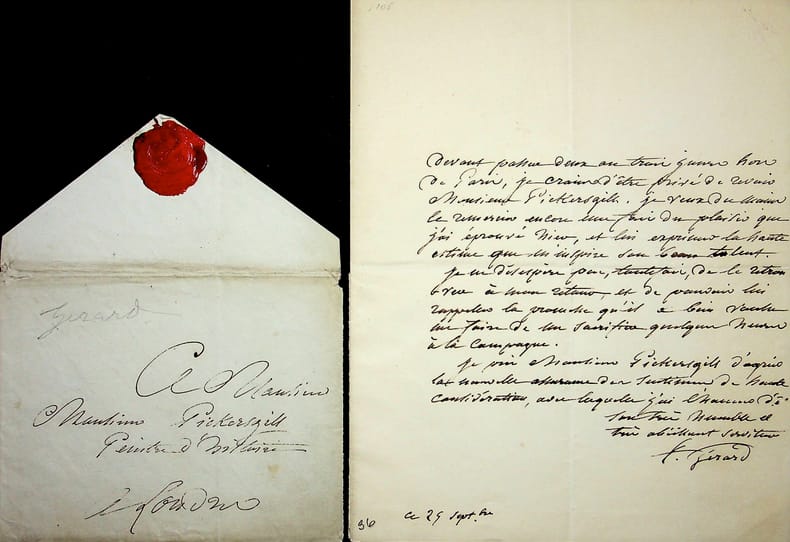 Gérard
A Monsieur
Monsieur Pickersgill
Peintre d'histoire
à Londres
Devant passer deux ou trois jours hors
de Paris, je crains d'être privé de revoir
Monsieur Pickersgill. je veux du moins
le remercier encore une fois du plaisir que
j'ai éprouvé hier, et lui exprimer la haute
estime que m'inspire son beau talent.
je ne désespère pas, toutefois, de le retrou
ver à mon retour, et de pouvoir lui
rappeller la promesse qu'il a bien voulu
me faire de me sacrifier quelques heures
à la Campagne.
je prie Monsieur Pickersgill d'agréer
la nouvelle assurance des sentimens de haute
Considération, avec laquelle j'ai l'honneur d'ê
son très humble et
très obéissant serviteur
F. Gérard
36
ce 29 Sept.bre